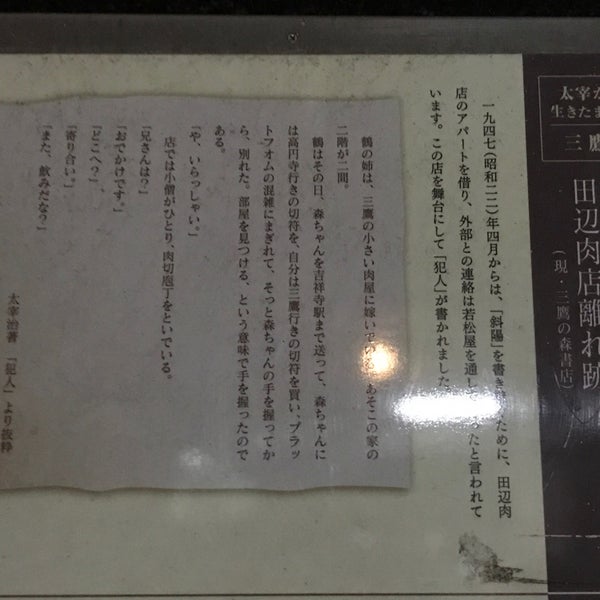 太宰が
生きたま
三鷹
田辺肉店離れ跡
(現・三鷹の森書店)
一九四七(昭和二二)年四月からは、「斜陽」を書き ために、田辺肉
店のアパートを借り、外部との連絡は若松屋を通し ったと言われて
います。この店を舞台にして「犯人」が書かれました
鶴の姉は、三鷹の小さい肉屋に嫁いでい あそこの家の
二階が二間。
鶴はその日、森ちゃんを吉祥寺駅まで送って、森ちゃんに
は高円寺行きの切符を、自分は三鷹行きの切符を買い、プラッ
トフオムの混雑にまぎれて、そっと森ちゃんの手を握ってか
ら、別れた。部屋を見つける、という意味で手を握ったので
ある。
「や、いらっしゃい。」
店では小僧がひとり、肉切庖丁をといでいる。
「兄さんは?」
「おでかけです。」
「どこへ?」
「寄り合い。」
「また、飲みだな?」
太宰治著 「犯人」より抜粋